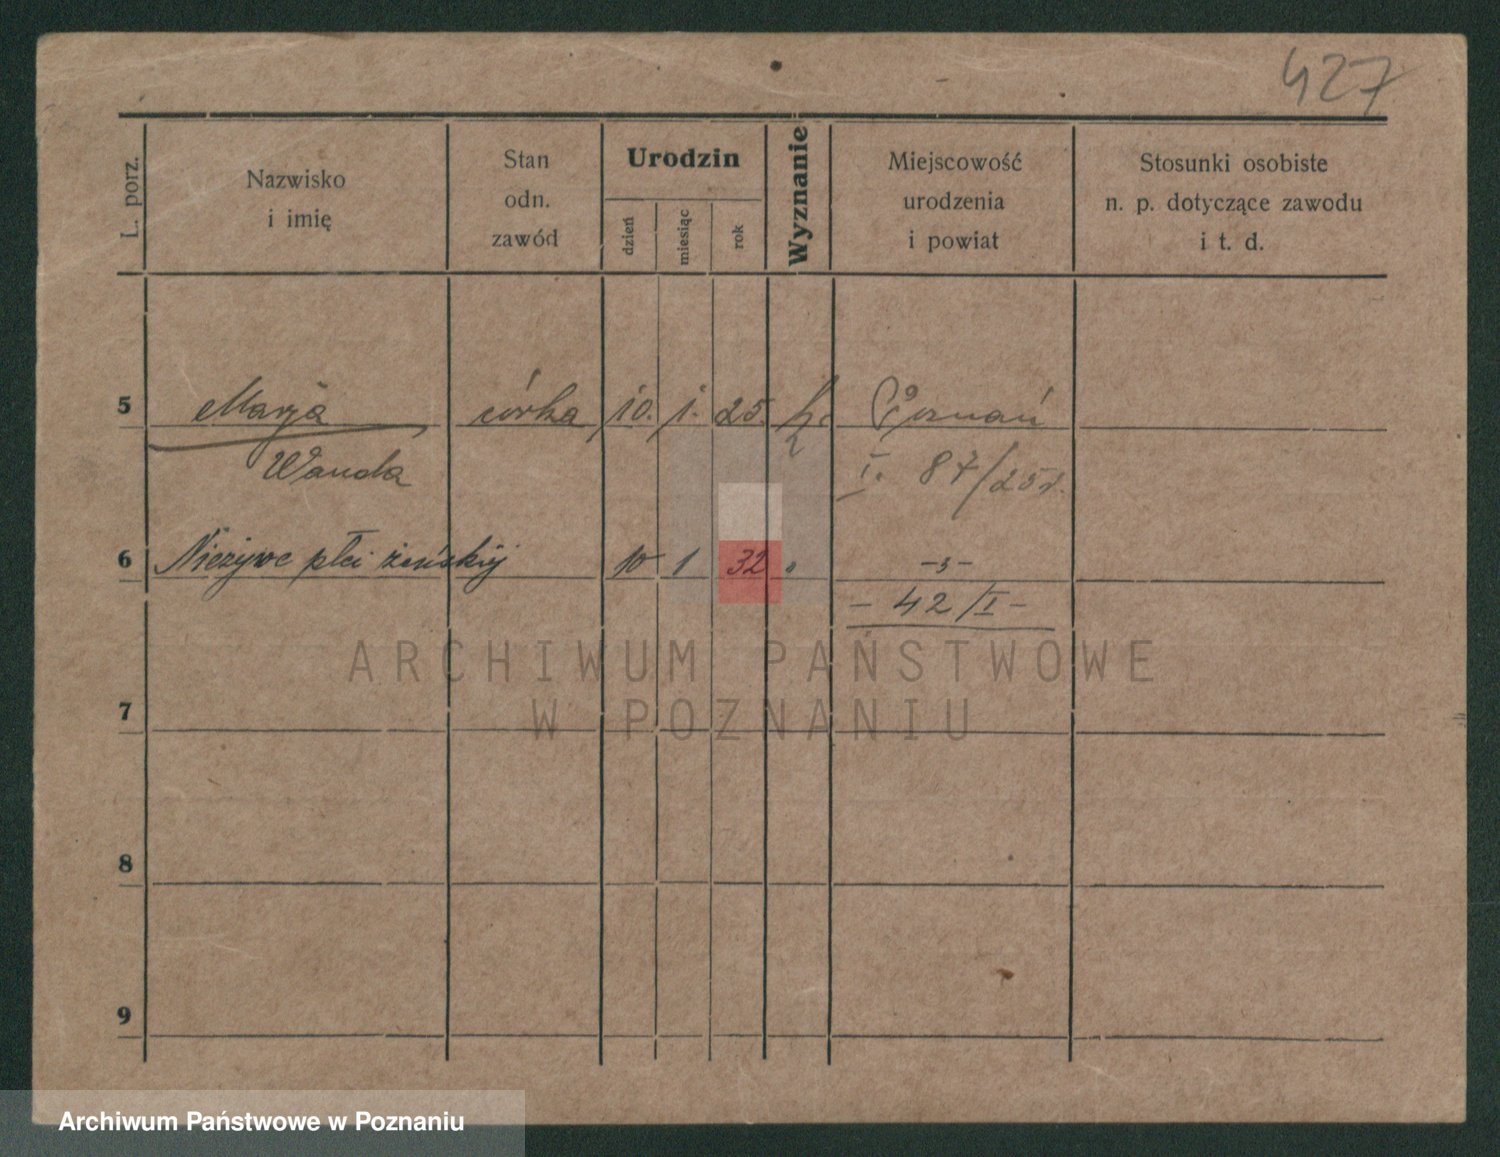 427
L. porz.
Nazwisko
i imię
Stan
odn.
zawód
Urodzin
dzień
miesiąc
rok
Wyznanie
Miejscowość
urodzenia
i powiat
Stosunki osobiste
n. p. dotyczące zawodu
i t. d.
5 Marja córka 10. 1. 25. Poznań
Wanda I. 87/25 r.
6 Nieżywe płci żeńskiej 10 1 32 -„-
- 42/I -
ARCHIWUM PAŃSTWOWE
W POZNANIU
7
8
9
Archiwum Państwowe w Poznaniu